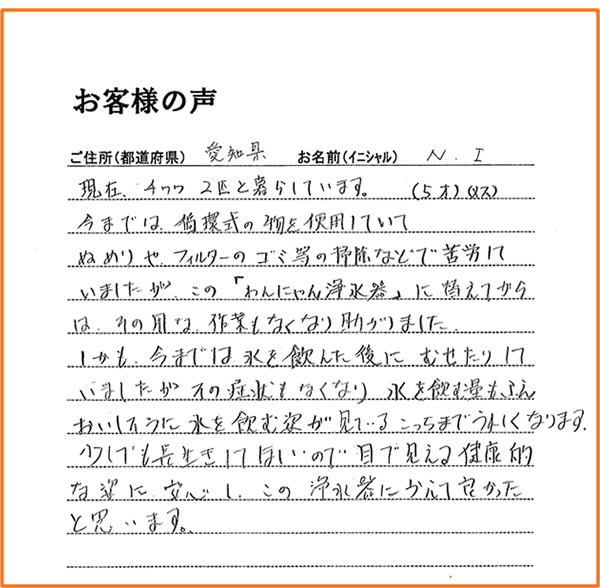 お客様の声
ご住所(都道府県) 愛知県 お名前(イニシャル) N.I
現在、チワワ 2匹と暮らしています。 (5才)(メス)
今までは、循環式の物を使用していて
ぬめりや、フィルターのゴミ等の掃除などで苦労して
いましたが、この「わんにゃん浄水器」に替えてから
は、その用な、作業もなくなり助かりました。
しかも、今までは水を飲んだ後に むせたりして
いましたが その症状もなくなり 水を飲む量もふえ
おいしそうに水を飲む姿が見ている こっちまでうれしくなります。
少しでも長生きしてほしいので 目で見える健康的
な姿に、安心し、この 浄水器にかえて良かった
と思います。